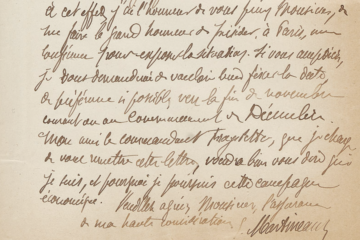 à cet effet, j'ai l'honneur de vous prier, Monsieur, de
me faire le grand honneur de présider, à Paris, une
conférence pour exposer la situation. Si vous acceptiez,
je vous demanderai de vouloir bien fixer la date,
de préférence si possible, vers la fin de novembre
courant ou au commencement de Décembre.
Mon ami le commandant que je charge
de vous remettre cette lettre, voudra bien vous dire qui
je suis, et pourquoi je poursuis cette campagne
économique. Veuillez agréer Monsieur, l'assurance
de ma haute considération
Martineau